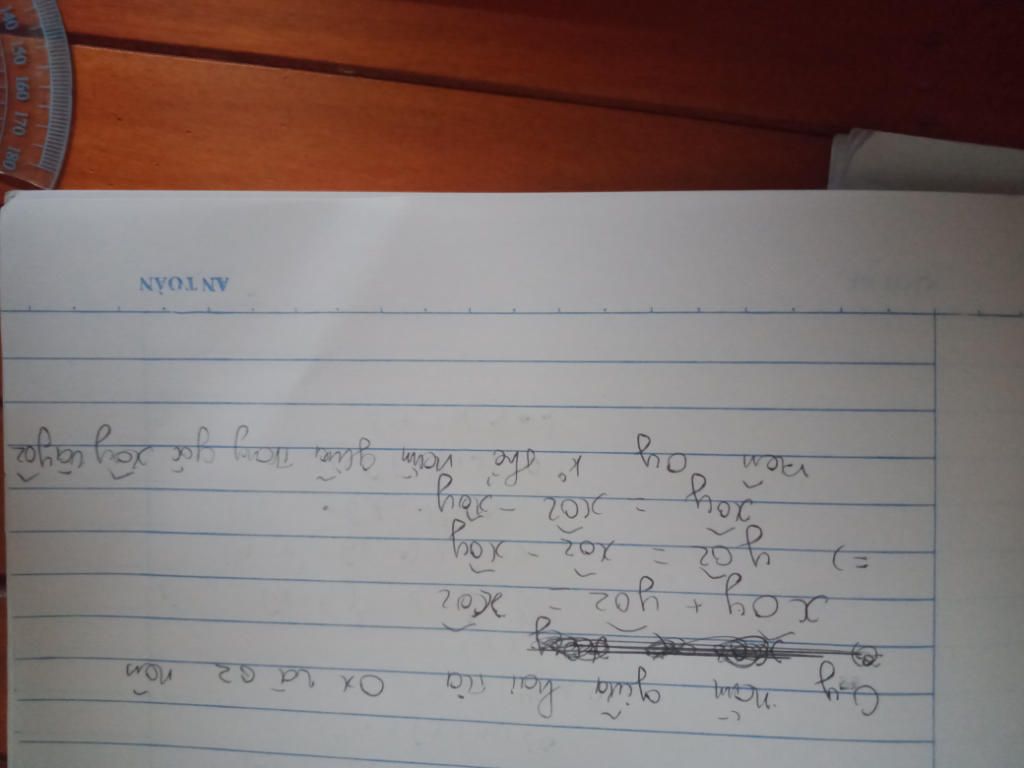 Oy nằm giữa hai tia Ox và Oz nên
xOy + yOz = xOz
=) yOz = xOz - xOy
xOy = xOz - xOy
nên Oy k° thể nằm giữa trong góc xOy và yOz
AN TOÀN
140 50 160 170 180